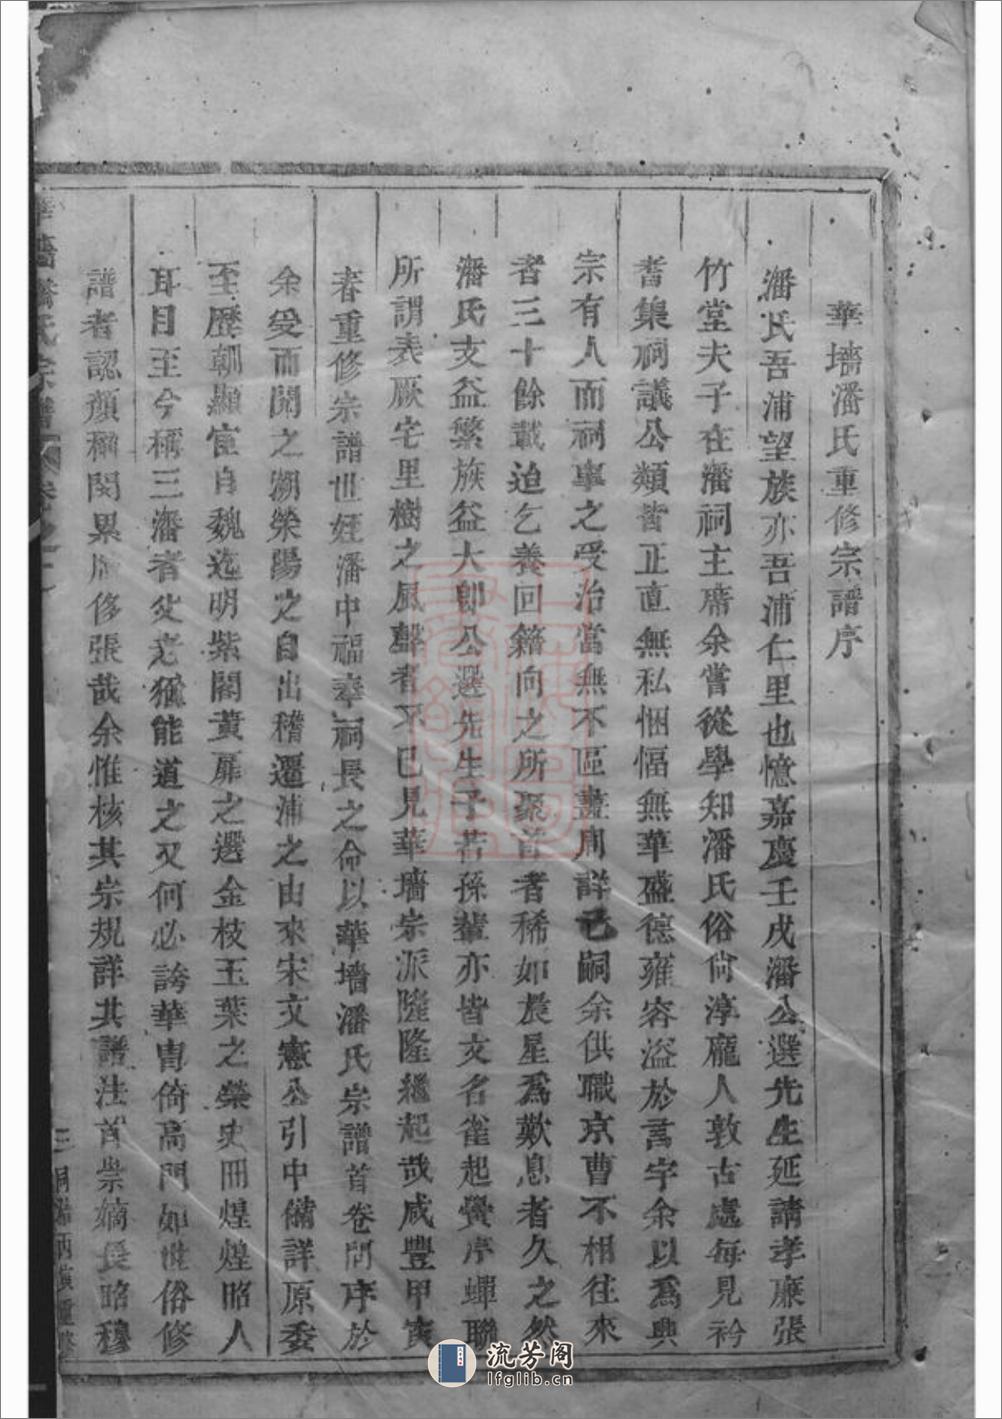 華墻潘氏重修宗譜序
潘氏吾浦望族亦吾浦仁里也憶嘉慶壬戌潘公選先生延請孝廉張
竹堂夫子在潘祠主席余嘗從學知潘氏俗尙淳龐人敦古處每見衿
耆集祠議公類皆正直無私悃愊無華盛德雍容溢於言宇余以爲興
宗有人而祠事之受治當無不區畫周詳已嗣余供職京曹不相往來
者三十餘載迨乞養回籍向之所聚首者稀如晨星爲歎息者久之然
潘氏支益繁族益大卽公選先生子若孫輩亦皆文名雀起黌序蟬聯
所謂表厥宅里樹之風聲者又已見華墻宗派隆隆繼起哉咸豐甲寅
春重修宗譜世姪潘中福奉祠長之命以華墻潘氏宗譜首卷問序於
余受而閱之溯滎陽之自出稽遷浦之由來宋文憲公引中備詳原委
至歷朝顯宦自魏迄明紫閣黃扉之選金枝玉葉之榮史冊煌煌昭人
耳目至今稱三潘者父老猶能道之又何必誇華冑倚高門如世俗修
譜者認顏稱閔累牘侈張哉余惟核其宗規詳其譜法首崇嫡長昭穆
華墻潘氏宗譜 卷之一
三 丙寅重修
流芳阁
lfglib.cn